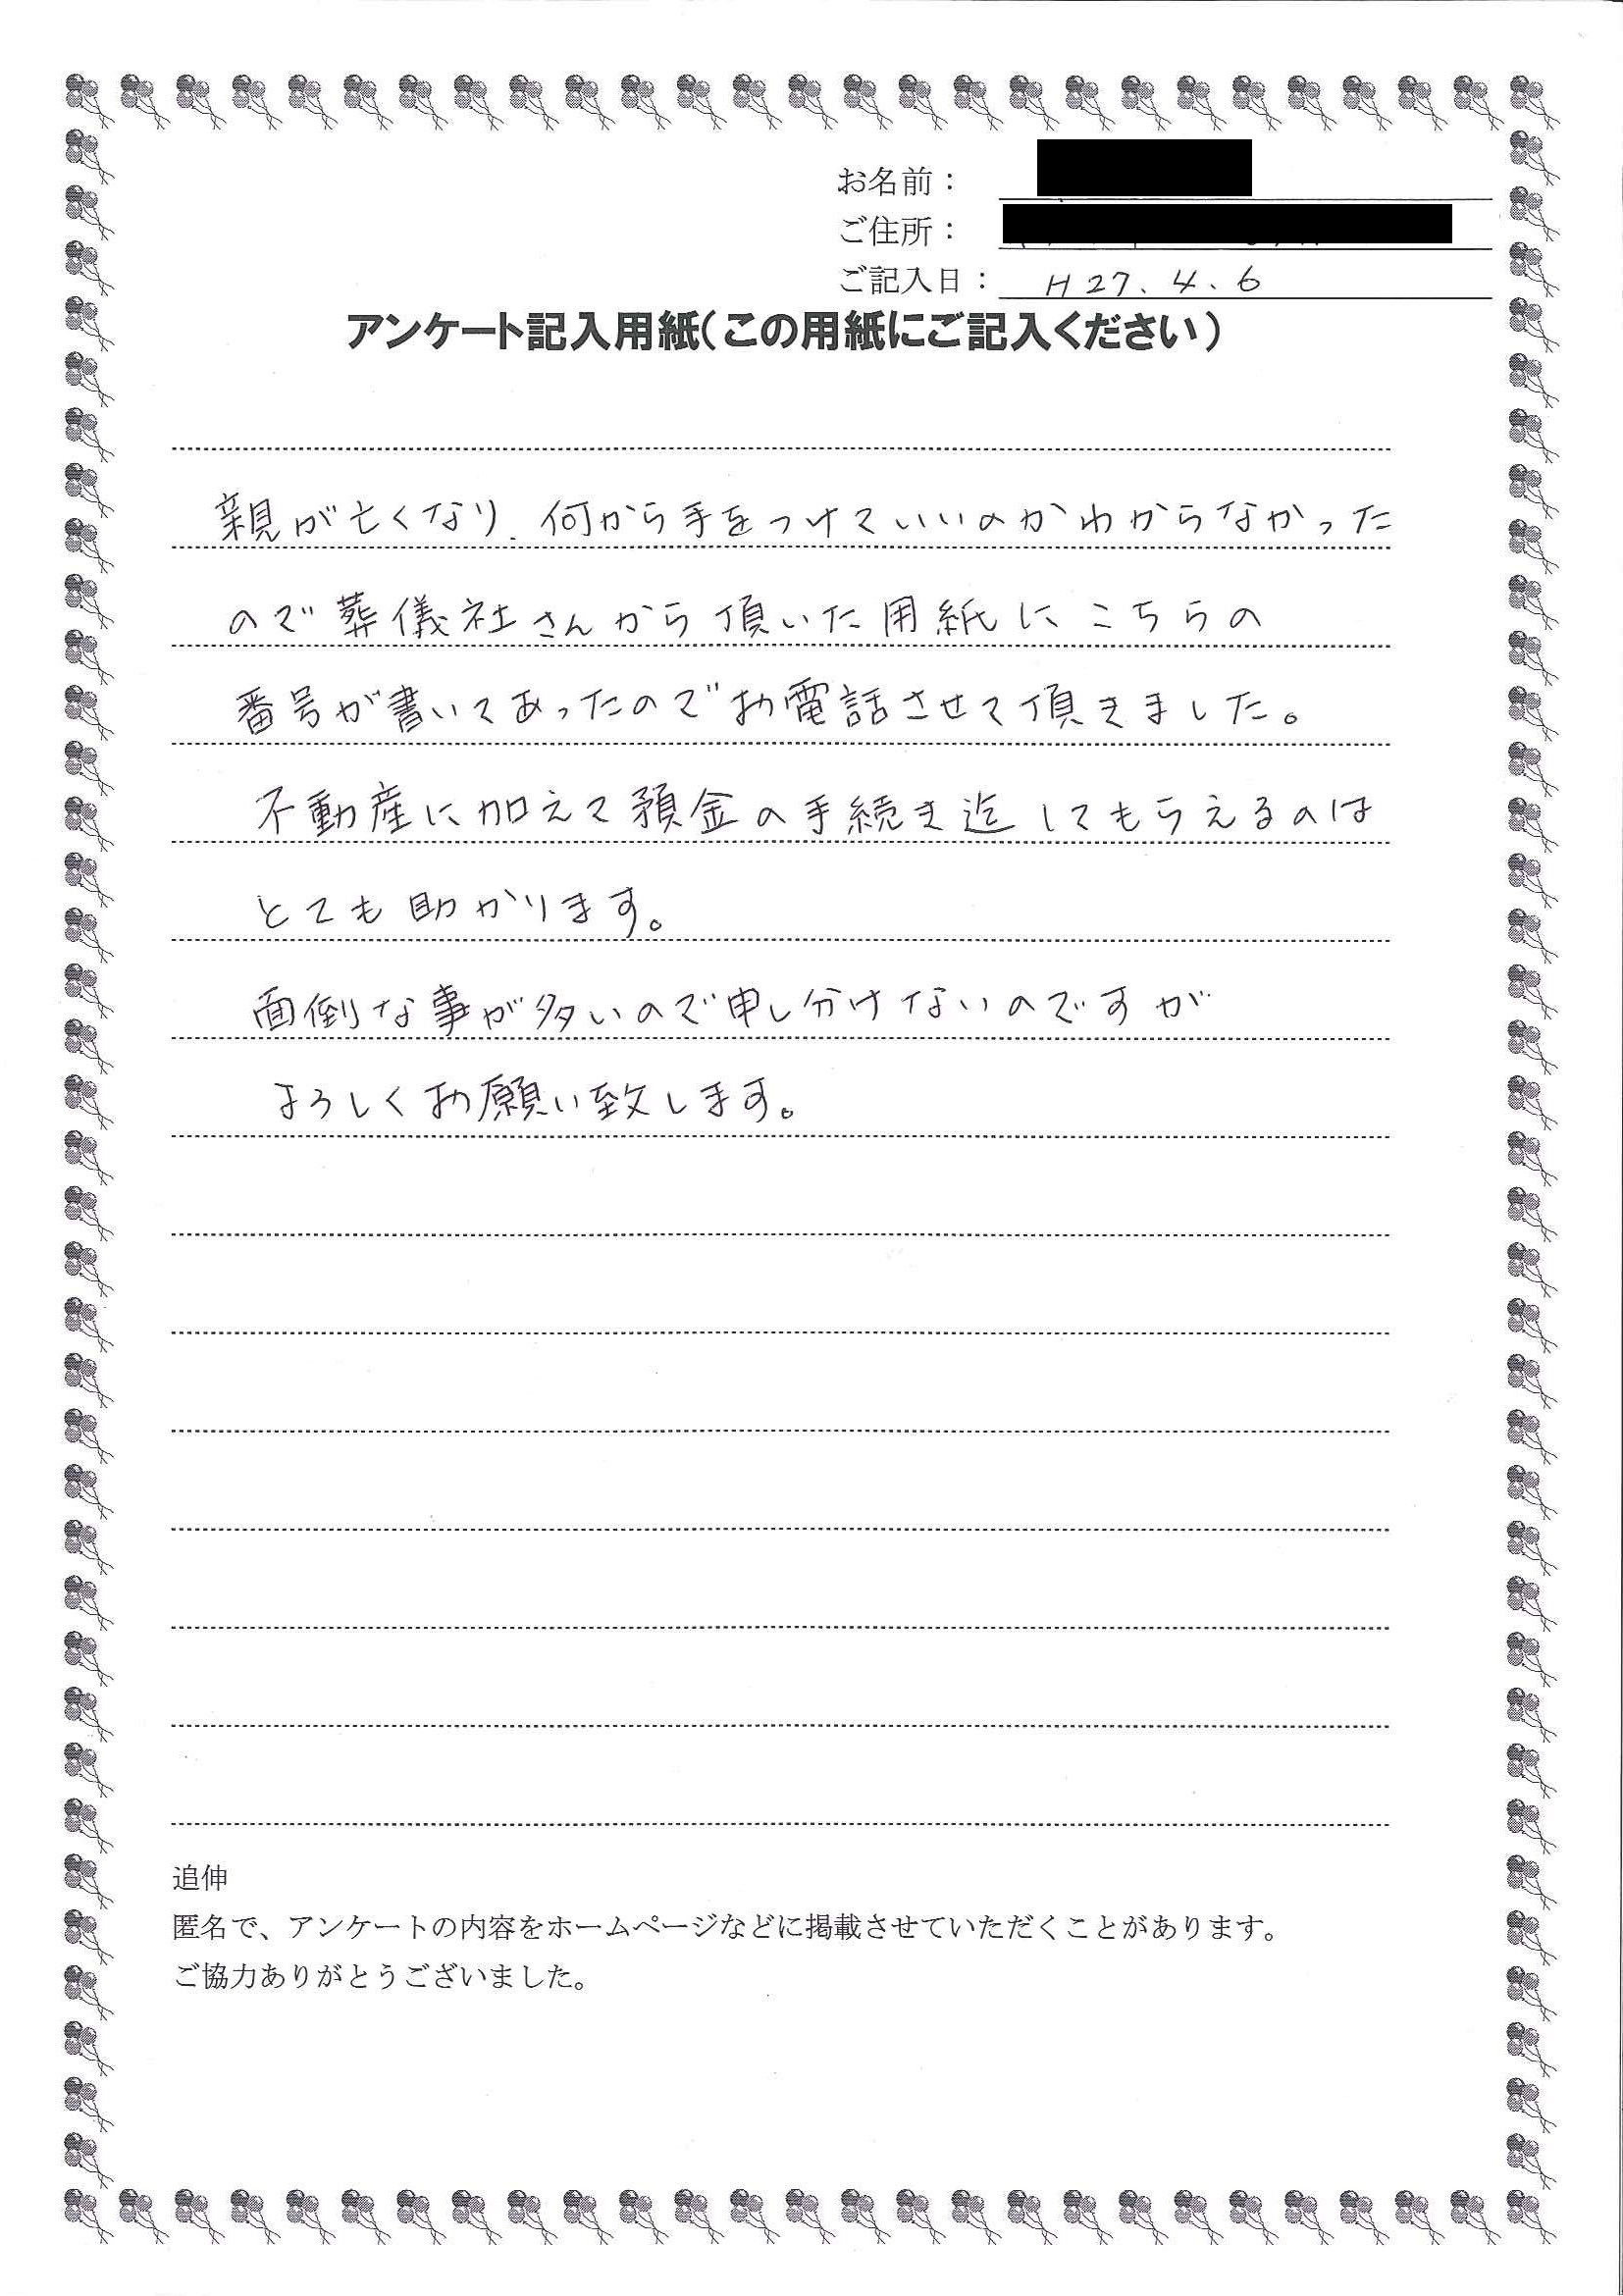 お名前：
ご住所：
ご記入日： H27.4.6
アンケート記入用紙（この用紙にご記入ください）
親が亡くなり、何から手をつけていいのかわからなかった
ので葬儀社さんから頂いた用紙にこちらの
番号が書いてあったのでお電話させて頂きました。
不動産に加えて預金の手続き迄してもらえるのは
とても助かります。
面倒な事が多いので申し分けないのですが
よろしくお願い致します。
追伸
匿名で、アンケートの内容をホームページなどに掲載させていただくことがあります。
ご協力ありがとうございました。